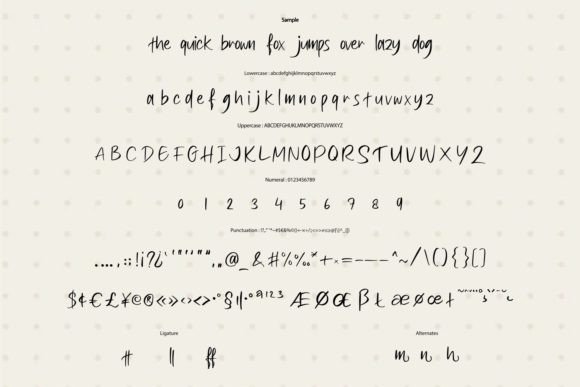 Sample
the quick brown fox jumps over lazy dog
Lowercase : abcdefghijklmnopqrstuvwxyz
a b c d e f g h i j k l m n o p q r s t u v w x y z
Uppercase : ABCDEFGHIJKLMNOPQRSTUVWXYZ
A B C D E F G H I J K L M N O P Q R S T U V W X Y Z
Numeral : 0123456789
0 1 2 3 4 5 6 7 8 9
Punctuation :
@ _ & # % ‰ * + × = - – — ^ ~ / \ ( ) { } [ ]
$ ¢ € £ ¥ © ® « » ‹ › < > · ° § ¶ Æ Ø Œ β ŧ æ ø œ ŧ
Ligature
Alternates
tt ll ff
m n h